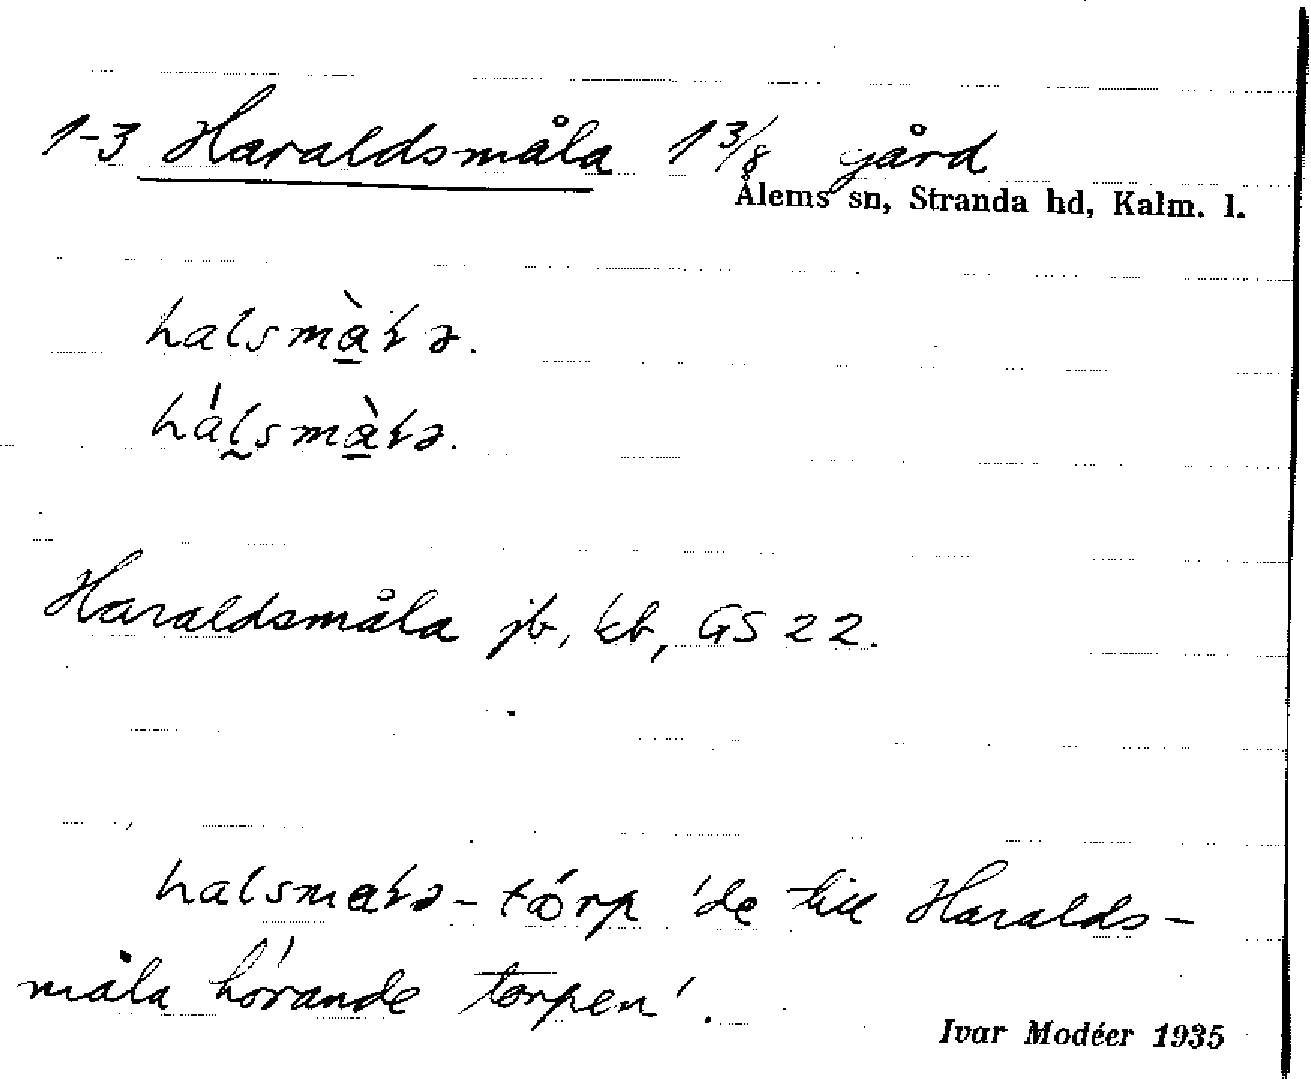 1-3 Haraldsmåla 1 3/8 gård
Ålems sn, Stranda hd, Kalm. l.
Haraldsmåla jb, kb, GS 22.
'de till Haralds-
måla hörande torpen'.
Ivar Modéer 1935